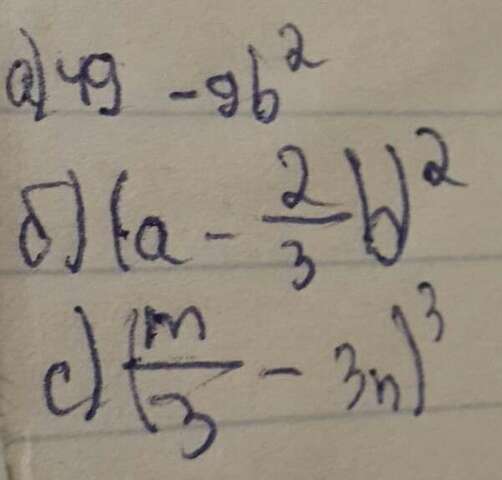 а) 49 - 9b²
б) (-a - 2/3 b)²
c) (m/3 - 3n)³